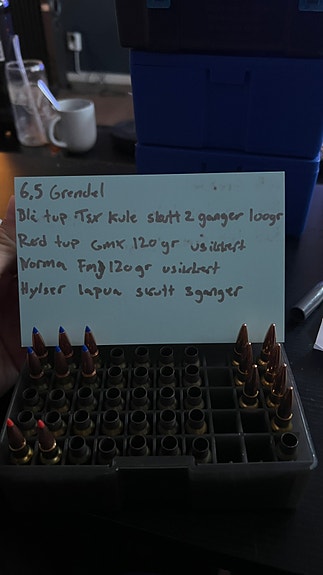 6,5 Grendel
Blå tup Tsx kule skutt 2 ganger 100gr
Rød tup GMX 120gr usikkert
Norma Fmj 120gr usikkert
Hylser lapua skutt 3ganger